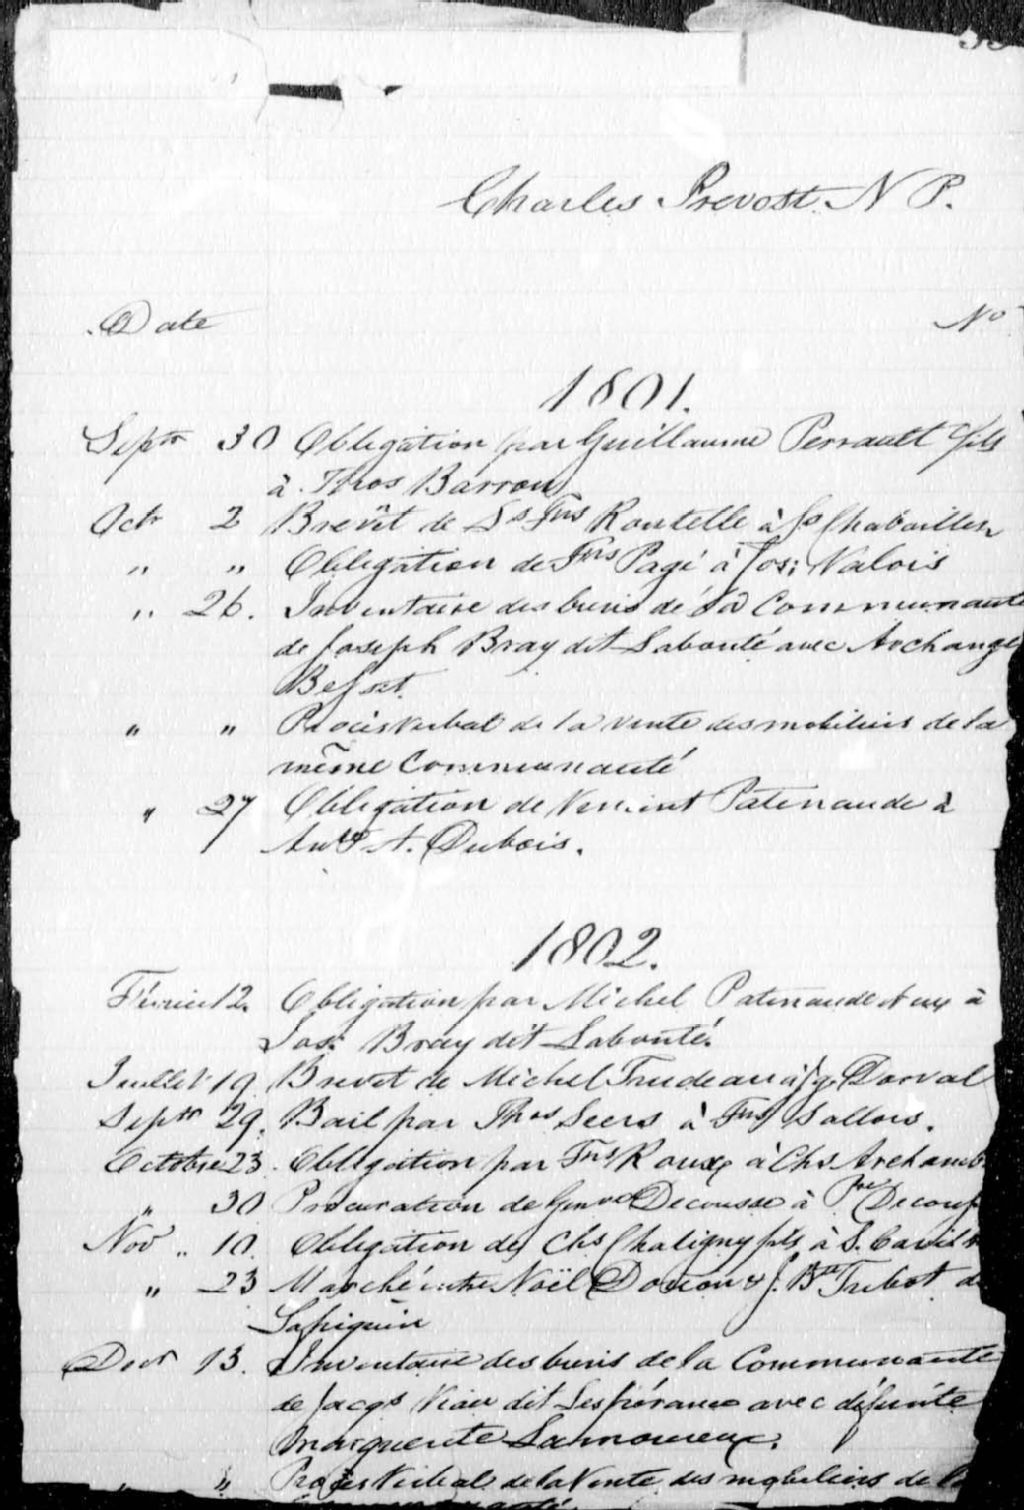 Charles Prevost. N P.
Date No
1801.
Septr 30 Obligation par Guillaume Perrault fils
à Thos Barron
Octr 2 Brevêt de Ls Frs Routelle à
" " Obligation de Frs Pagé à Jos: Valois
" 26. Inventaire des biens de la Communauté
de Joseph Bray dit Labonté avec Archange
Besset
" " Procès Verbal de la vente des mobiliers de la
même Communauté
" 27 Obligation de Vincent Patenaude à
A. Dubois.
1802.
Février 12. Obligation par Michel Patenaude & ux à
Jos: Bray dit Labonté.
Juillet 19 Brevet de Michel Trudeau à Dorval
Septr 29. Bail par Thos Seers à Frs
Octobre 23. Obligation par Frs Roux à Chs Archamb
" 30 Procuration de Decousse à Pre
Nov " 10. Obligation de Chs Chatigny fils à S.
" 23 Marché entre Noël Doiron & J. Bte
Decr 13. Inventaire des biens de la Communauté
de Jacqs Viau dit Lespérance avec défunte
Marguerite Lamoureux.
" " Procès Verbal de la Vente des mobiliers de la